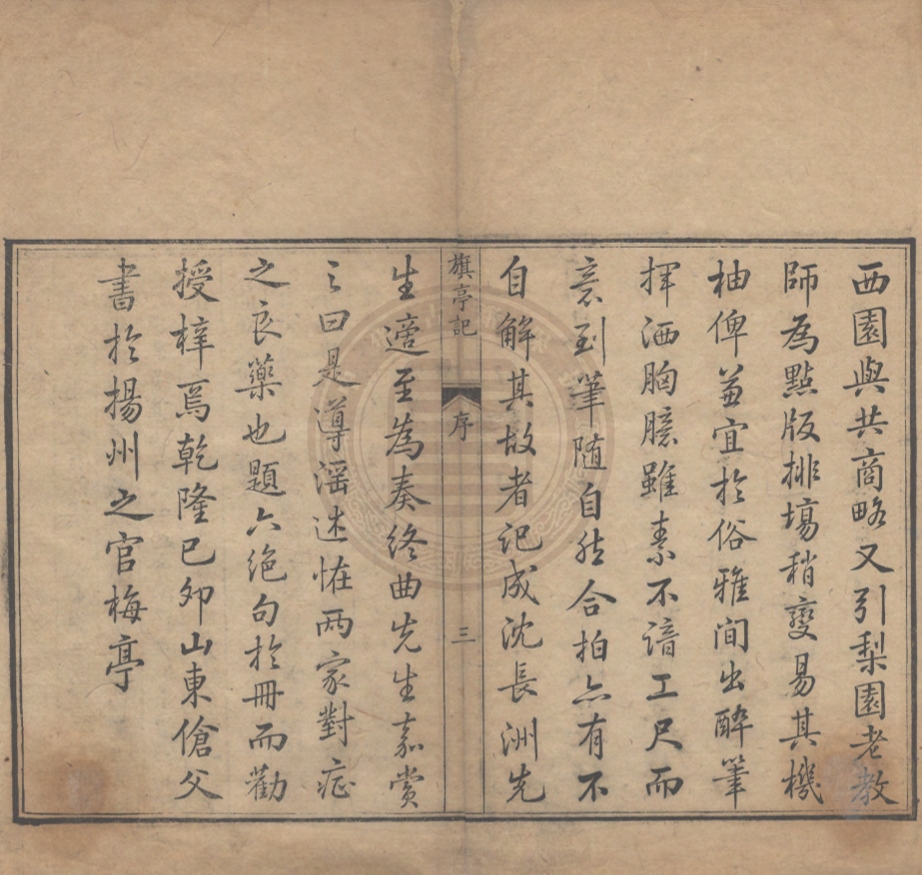 西園與共商略又引梨園老教
師為點版排場稍變易其機
柚俾兼宜於俗雅間出醉筆
揮洒胸臆雖素不諳工尺而
意到筆随自然合拍亦有不
自解其故者記成沈長洲先
旗亭記
序
三
生適至為奏終曲先生嘉賞
之曰是導滛述怪两家對症
之良藥也題六絕句於冊而勸
授梓焉乾隆已卯山東傖父
書於揚州之官梅亭